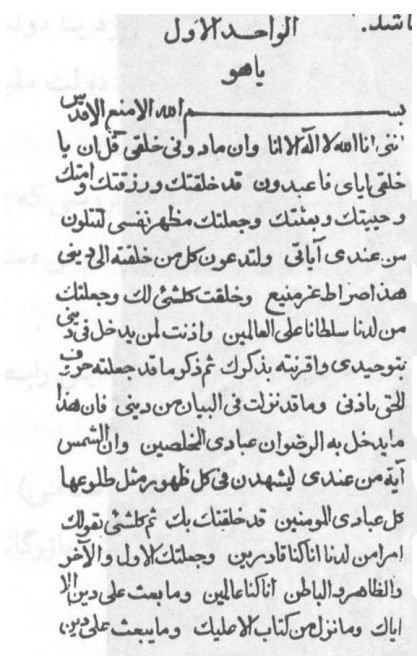 باشد.
الواحد الاول
یاهو
بسم الله الامنع الاقدس
اننی انا الله لا اله الا انا وان مادونی خلقی قل ان یا
خلقی ایای فاعبدون قد خلقتك ورزقتك وامتك
وحییتك وبعثتك وجعلتك مظهر نفسی لتتلون
من عندی آیاتی ولتدعون كل من خلقته الی دینی
هذا صراط عز منیع وخلقت كلشئ لك وجعلتك
من لدنا سلطانا علی العالمین واذنت لمن یدخل فی دینی
بتوحیدی واقرنته بذكرك ثم ذكر ما قد جعلته حروف
الحی باذنی وما قد نزلت فی البیان من دینی فان هذا
ما یدخل به الرضوان عبادی المخلصین وان الشمس
آیة من عندی لیشهدن فی كل ظهور مثل طلوعها
كل عبادی المومنین قد خلقتك بك ثم كلشئ بقولك
امرا من لدنا انا كنا قادرین وجعلتك الاول والآخر
والظاهر والباطن انا كنا عالمین وما بعث علی دین الا
ایاك وما نزل من كتاب الا علیك وما یبعث علی دین